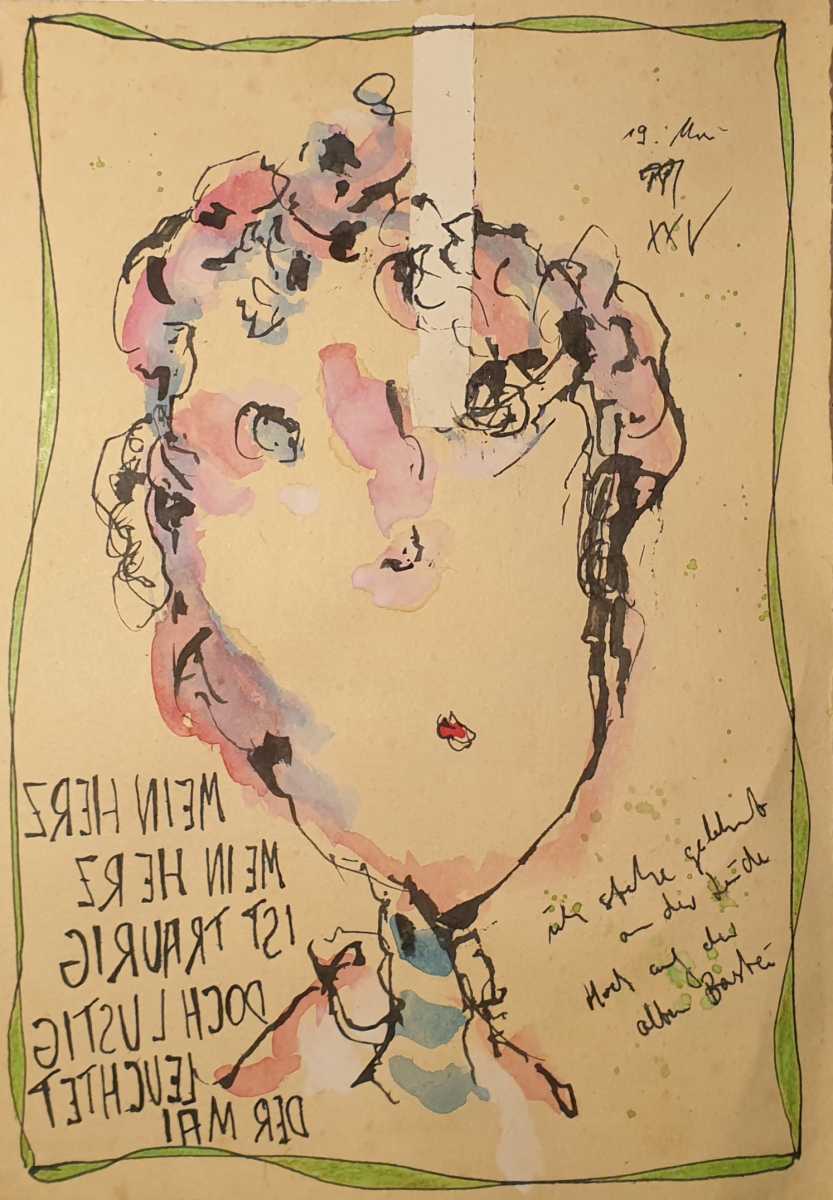 19. Mai
XXV
MEIN HERZ
MEIN HERZ
IST TRAURIG
DOCH LUSTIG
LEUCHTET
DER MAI
ich stehe gelehnt
an der Linde
Hoch auf der
alten Bastei